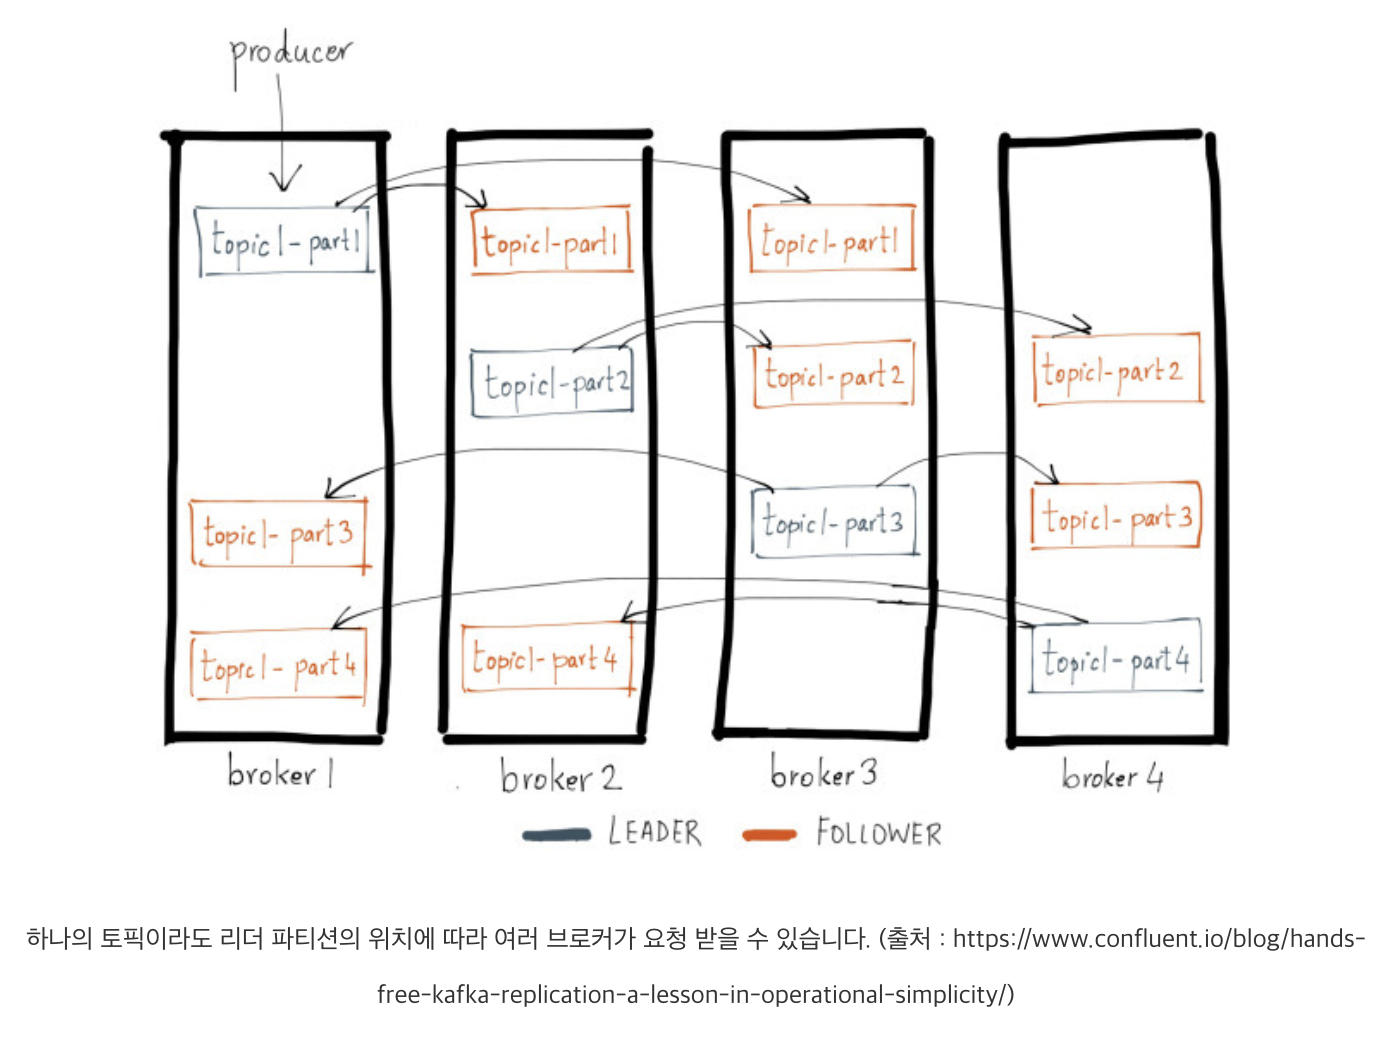 producer
topic1-part1
topic1-part1
topic1-part1
topic1-part2
topic1-part2
topic1-part2
topic1-part3
topic1-part3
topic1-part3
topic1-part4
topic1-part4
topic1-part4
broker 1
broker 2
broker 3
broker 4
LEADER
FOLLOWER
하나의 토픽이라도 리더 파티션의 위치에 따라 여러 브로커가 요청 받을 수 있습니다. (출처 : https://www.confluent.io/blog/hands-
free-kafka-replication-a-lesson-in-operational-simplicity/)